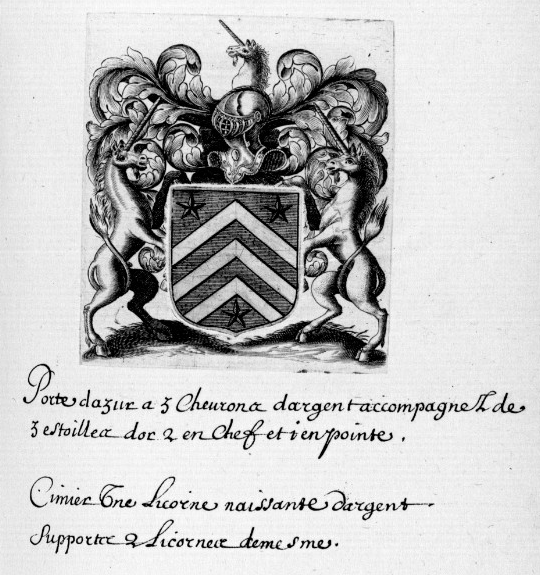 Porte dazur a 3 Cheurons dargent accompagneZ de
3 estoilles dor 2 en Chef et i en pointe.
Cimier Une Licorne naissante dargent.
Supportz 2 Licornes demesme.